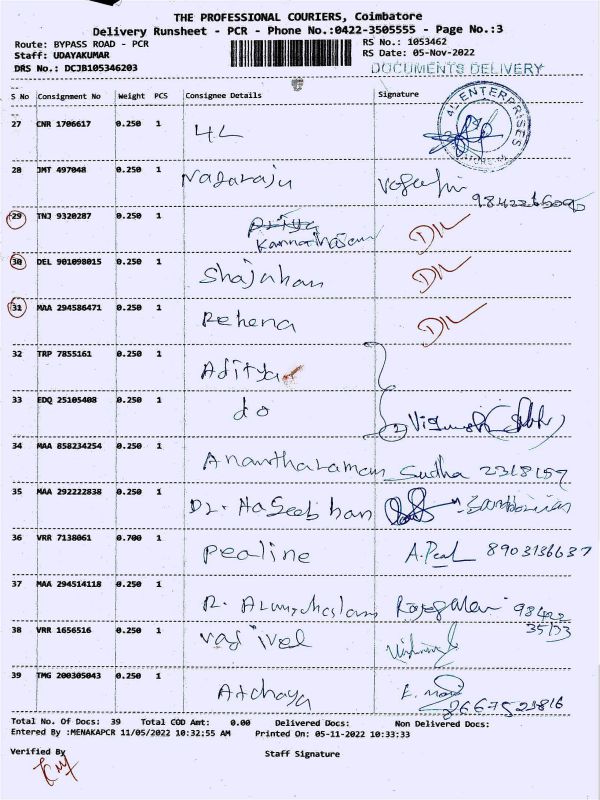 THE PROFESSIONAL COURIERS, Coimbatore
Delivery Runsheet - PCR - Phone No.:0422-3505555 - Page No.:3
Route: BYPASS ROAD - PCR RS No.: 1053462
Staff: UDAYAKUMAR RS Date: 05-Nov-2022
DRS No.: DCJB105346203 DOCUMENTS DELIVERY
S No Consignment No Weight PCS Consignee Details Signature
27 CNR 1706617 0.250 1 4L 4L ENTERPRISES
28 JMT 497048 0.250 1 Nagaraju
29 TNJ 9320287 0.250 1 Kannathasan DIL
30 DEL 901098015 0.250 1 Shajahan DIL
31 MAA 294586471 0.250 1 Rehena DIL
32 TRP 7855161 0.250 1 Aditya
33 EDQ 25105408 0.250 1 do 2
34 MAA 858234254 0.250 1 Anantharaman Sudha 2318159
35 MAA 292222838 0.250 1 Dr. Haseebhan
36 VRR 7138061 0.700 1 Pealine A. Peal 8903136637
37 MAA 294514118 0.250 1 R. 98422
35133
38 VRR 1656516 0.250 1 Vadivel
39 TMG 200305043 0.250 1 Atchaya
Total No. Of Docs: 39 Total COD Amt: 0.00 Delivered Docs: Non Delivered Docs:
Entered By :MENAKAPCR 11/05/2022 10:32:55 AM Printed On: 05-11-2022 10:33:33
Verified By Staff Signature